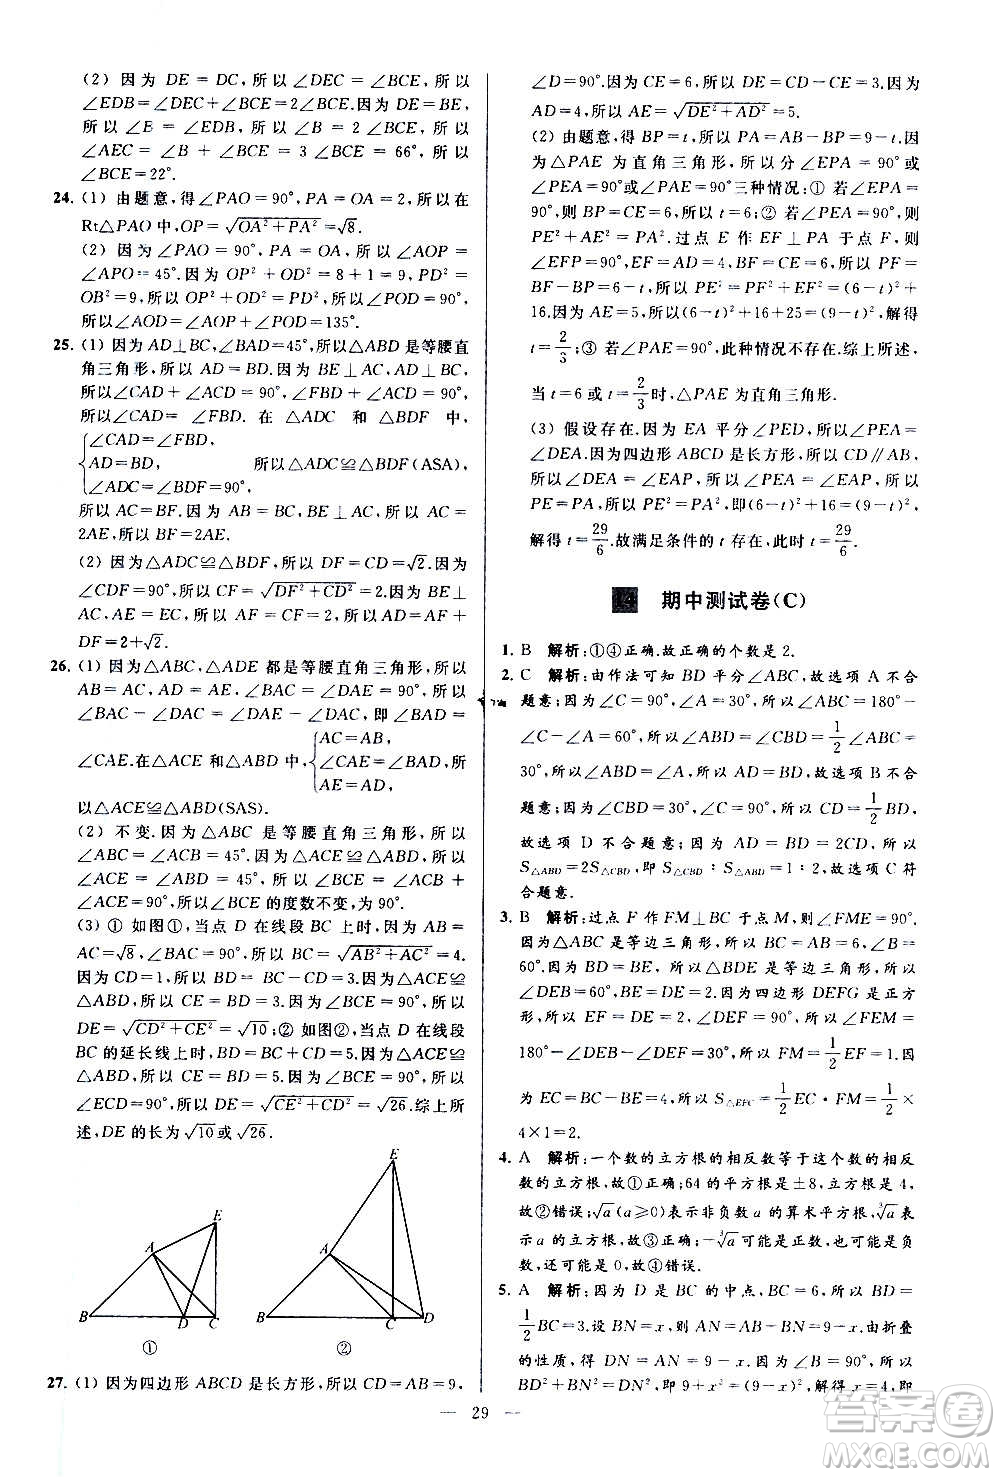 (2) 因为 DE=DC,所以∠DEC=∠BCE,所以
∠EDB=∠DEC+∠BCE=2∠BCE.因为 DE=BE,
所以∠B=∠EDB,所以∠B=2∠BCE,所以
∠AEC=∠B+∠BCE=3∠BCE=66°,所以
∠BCE=22°.
24. (1) 由题意,得∠PAO=90°,PA=OA=2,所以在
Rt△PAO 中,OP=√(OA²+PA²)=√8.
(2) 因为∠PAO=90°,PA=OA,所以∠AOP=
∠APO=45°.因为 OP²+OD²=8+1=9,PD²=
OB²=9,所以 OP²+OD²=PD²,所以∠POD=90°,
所以∠AOD=∠AOP+∠POD=135°.
25. (1) 因为 AD⊥BC,∠BAD=45°,所以△ABD 是等腰直
角三角形,所以 AD=BD.因为 BE⊥AC,AD⊥BC,
所以∠CAD+∠ACD=90°,∠FBD+∠ACD=90°,
所以∠CAD=∠FBD.在△ADC 和△BDF 中,
∠CAD=∠FBD,
AD=BD, 所以△ADC≌△BDF(ASA),
∠ADC=∠BDF=90°,
所以 AC=BF.因为 AB=BC,BE⊥AC,所以 AC=
2AE,所以 BF=2AE.
(2) 因为△ADC≌△BDF,所以 DF=CD=√2.因为
∠CDF=90°,所以 CF=√(DF²+CD²)=2.因为 BE⊥
AC,AE=EC,所以 AF=CF=2,所以 AD=AF+
DF=2+√2.
26. (1) 因为△ABC,△ADE 都是等腰直角三角形,所以
AB=AC,AD=AE,∠BAC=∠DAE=90°,所以
∠BAC-∠DAC=∠DAE-∠DAC,即∠BAD=
AC=AB,
∠CAE.在△ACE 和△ABD 中,∠CAE=∠BAD,所
AE=AD,
以△ACE≌△ABD(SAS).
(2) 不变.因为△ABC 是等腰直角三角形,所以
∠ABC=∠ACB=45°.因为△ACE≌△ABD,所以
∠BCE=∠BCA+∠ACE=∠BCA+∠ABC=90°,
所以∠BCE的度数不变,为90°.
(3) ① 如图①,当点 D 在线段 BC 上时,因为 AB=
AC=√8,∠BAC=90°,所以 BC=√(AB²+AC²)=4.
因为 CD=1,所以 BD=BC-CD=3.因为△ACE≌
△ABD,所以 CE=BD=3.因为∠BCE=90°,所以
DE=√(CD²+CE²)=√10;② 如图②,当点 D 在线段
BC 的延长线上时,BD=BC+CD=5.因为△ACE≌
△ABD,所以 CE=BD=5.因为∠BCE=90°,所以
∠ECD=90°,所以 DE=√(CE²+CD²)=√26.综上所
述,DE 的长为√10或√26.
E
A
B
D
C
①
E
A
B
C
D
②
27. (1) 因为四边形 ABCD 是长方形,所以 CD=AB=9,
∠D=90°.因为 CE=6,所以 DE=CD-CE=3.因为
AD=4,所以 AE=√(DE²+AD²)=5.
(2) 由题意,得 BP=t,所以 PA=AB-BP=9-t,因
为△PAE 为直角三角形,所以分∠EPA=90°或
∠PEA=90°三种情况:① 若∠EPA=
90°,则 BP=CE=6,所以 t=6;② 若∠PEA=90°,则
PE²+AE²=PA².过点 E 作 EF⊥PA 于点 F,则
∠EFP=90°,EF=AD=4,BF=CE=6,所以 PF=
BF-BP=6-t,所以 PE²=PF²+EF²=(6-t)²+
16.因为 AE=5,所以(6-t)²+16+25=(9-t)²,解得
t=2/3;③ 若∠PAE=90°,此种情况不存在.综上所述,
当 t=6 或 t=2/3时,△PAE 为直角三角形.
(3) 假设存在.因为 EA 平分∠PED,所以∠PEA=
∠DEA.因为四边形 ABCD 是长方形,所以 CD∥AB,
所以∠DEA=∠EAP,所以∠PEA=∠EAP,所以
PE=PA,所以 PE²=PA²,即(6-t)²+16=(9-t)²,
解得 t=29/6.故满足条件的 t 存在,此时 t=29/6.
14 期中测试卷(C)
1. B 解析:①④正确.故正确的个数是 2.
2. C 解析:由作法可知 BD 平分∠ABC,故选项 A 不合
题意;因为∠C=90°,∠A=30°,所以∠ABC=180°-
∠C-∠A=60°,所以∠ABD=∠CBD=1/2∠ABC=
30°,所以∠ABD=∠A,所以 AD=BD,故选项 B 不合
题意;因为∠CBD=30°,∠C=90°,所以 CD=1/2BD,
故选项 D 不合题意;因为 AD=BD=2CD,所以
S△ABD=2S△CBD,即 S△CBD∶S△ABD=1∶2,故选项 C 符
合题意.
3. B 解析:过点 F 作 FM⊥BC 于点 M,则∠FME=90°,
因为△ABC 是等边三角形,所以 BC=AB=6,∠B=
60°.因为 BD=BE,所以△BDE 是等边三角形,所以
∠DEB=60°,BE=DE=2.因为四边形 DEFG 是正方
形,所以 EF=DE=2,∠DEF=90°,所以∠FEM=
180°-∠DEB-∠DEF=30°,所以 FM=1/2EF=1.因
为 EC=BC-BE=4,所以 S△EFC=1/2EC·FM=1/2×
4×1=2.
4. A 解析:一个数的立方根的相反数等于这个数的相反
数的立方根,故①正确;64 的平方根是±8,立方根是 4,
故②错误;√a(a≥0)表示非负数 a 的算术平方根,∛a表
示 a 的立方根,故③正确;-∛a可能是正数,可能是负
数,还可能是 0,故④错误.
5. A 解析:因为 D 是 BC 的中点,BC=6,所以 BD=
1/2BC=3.设 BN=x,则 AN=AB-BN=9-x,由折叠
的性质,得 DN=AN=9-x,因为∠B=90°,所以
BD²+BN²=DN²,即 9+x²=(9-x)²,解得 x=4,即
— 29 —
答案圈
MXQE.COM